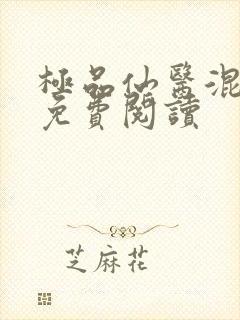 極品仙醫混
免費閱讀
芝麻花